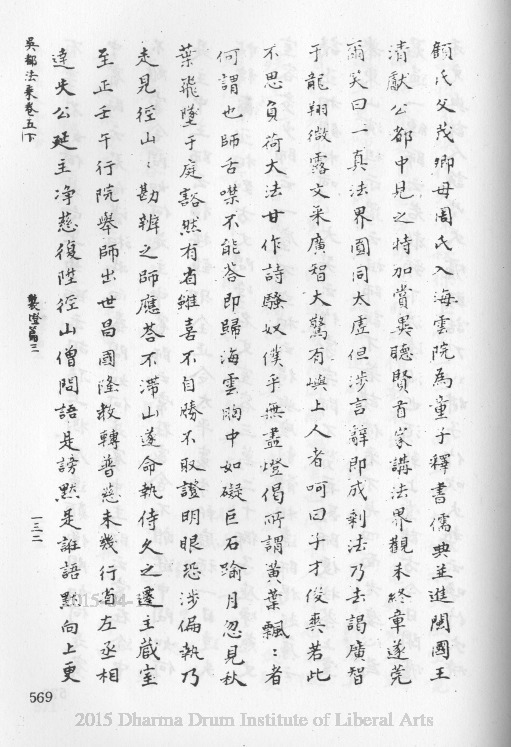 顧氏父茂卿母周氏入海雲院為童子釋書儒典並進閩國王
清獻公都中見之特加賞異聽賢首家講法界觀未終章遂莞
爾笑曰一真法界圓同太虛但涉言辭即成剩法乃去謁廣智
于龍翔微露文采廣智大驚有嶼上人者呵曰子才俊爽若此
不思負荷大法甘作詩騷奴僕乎無盡燈偈所謂黃葉飄〻者
何謂也師舌噤不能答即歸海雲胸中如礙巨石踰月忽見秋
葉飛墜于庭豁然有省雖喜不自勝不取證明眼恐涉偏執乃
走見徑山勘辨之師應答不滯山遂命執侍久之遷主藏室
至正壬午行院舉師出世昌國隆教轉普慈未幾行省左丞相
達失公延主净慈復陞徑山僧問語是謗默是誑語默向上更
吳都法乘卷五下
製燈篇三
一三二
569
2015 Dharma Drum Institute of Liberal Arts